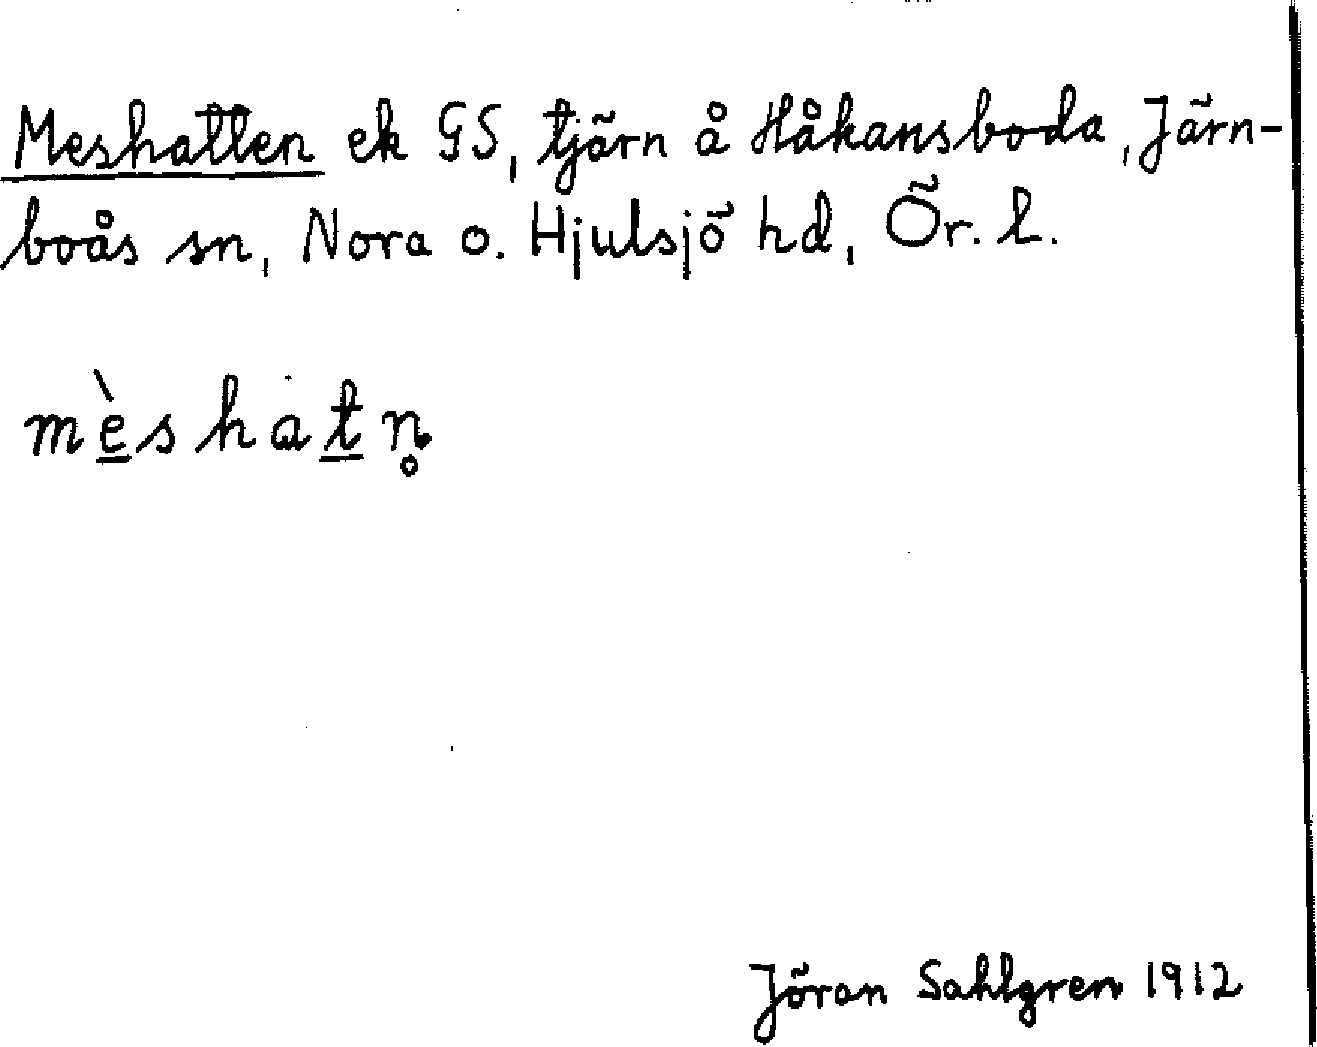 Meshatten ek GS, tjärn å Håkansboda, Järn-
boås sn, Nora o. Hjulsjö hd, Ör. l.
mè̱shaṯn̥
Jöran Sahlgren 1912